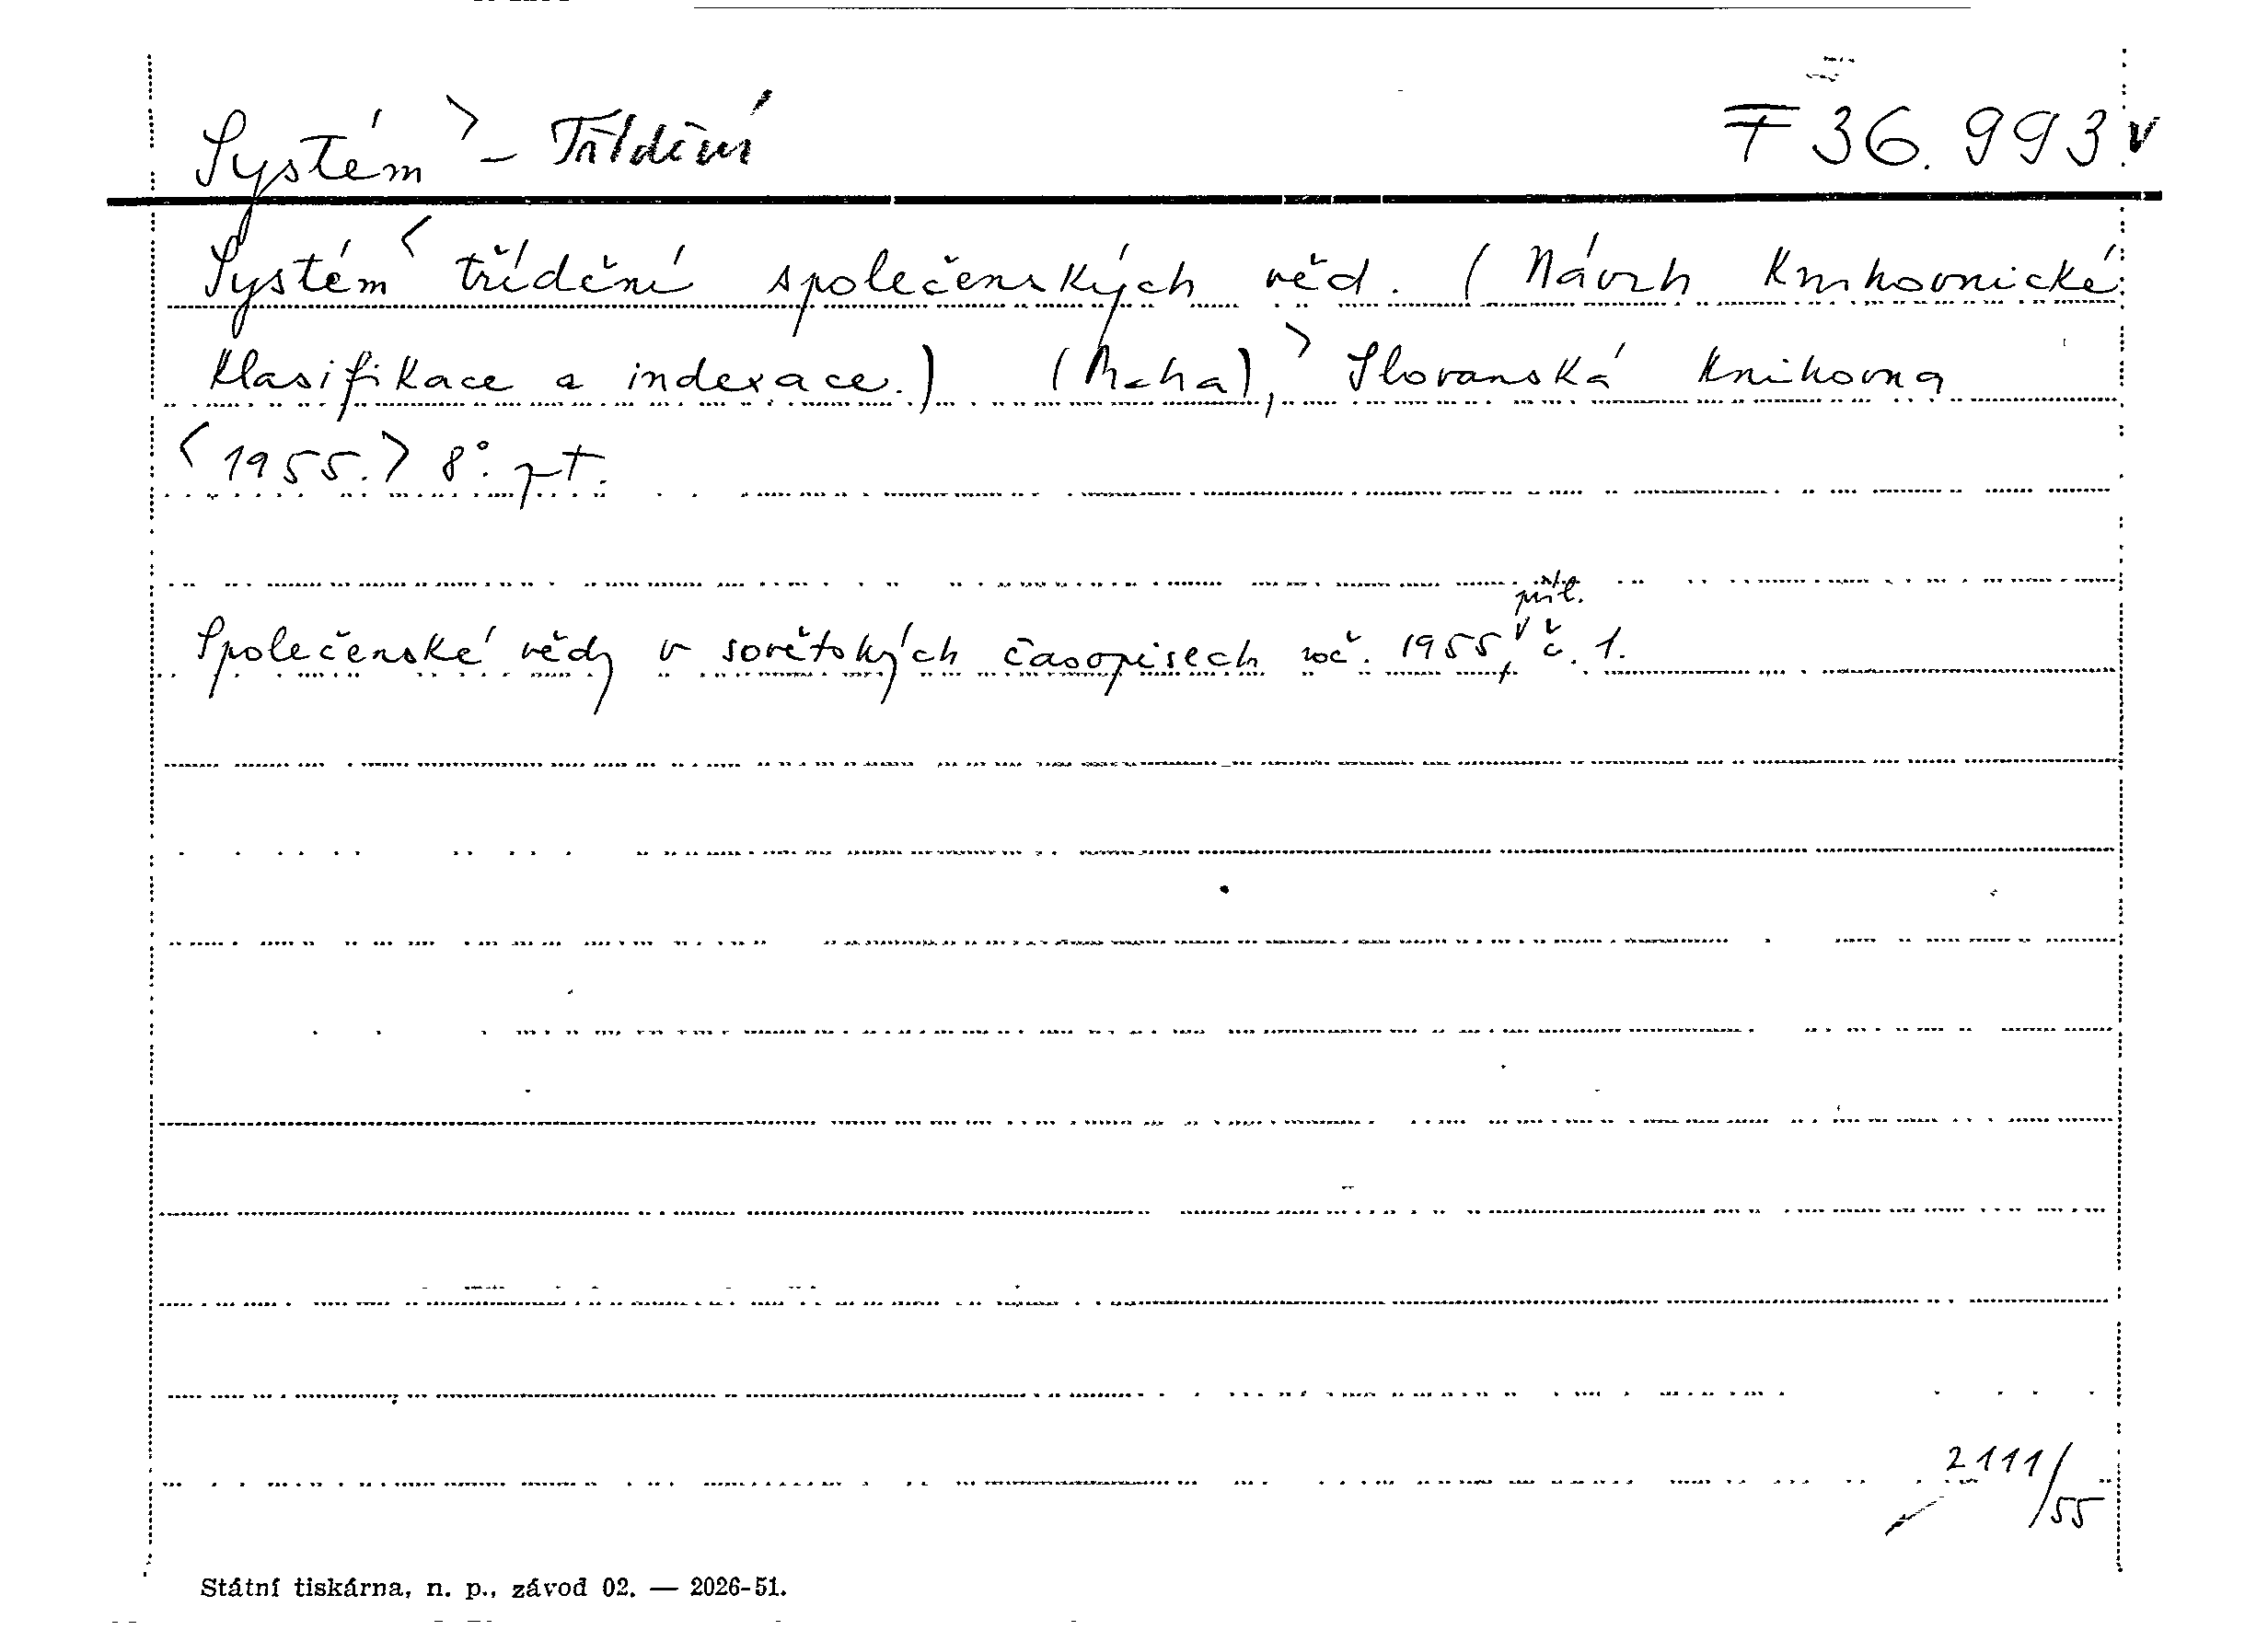 Systém > - Třídění F 36.993.v
Systém < třídění společenských věd. (Návrh knihovnické
klasifikace a indexace.) (Praha), > Slovanská knihovna
<1955.> 8°. pt.
příl.
Společenské vědy v sovětských časopisech roč. 1955, v č. 1.
2111/55
Státní tiskárna, n. p., závod 02. — 2026-51.